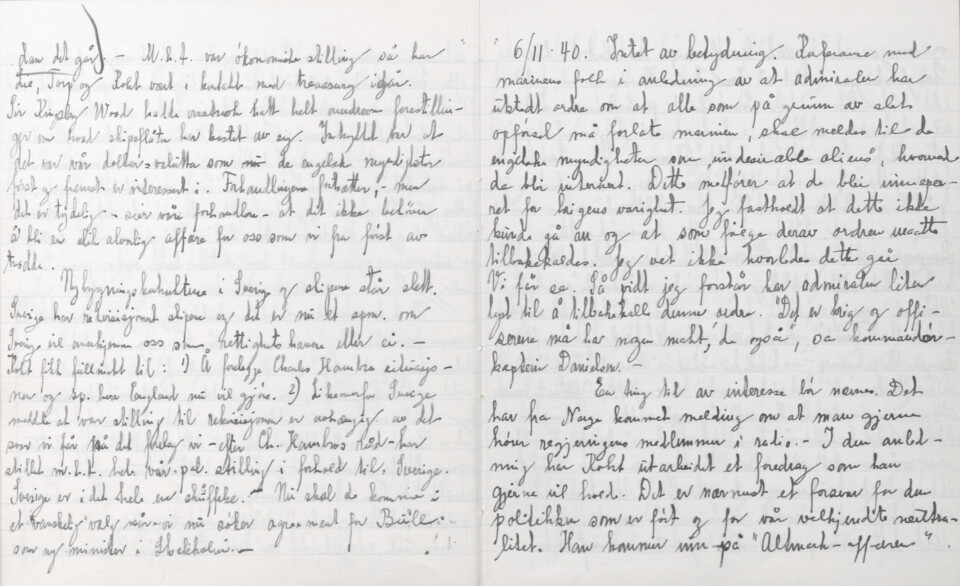 det går. – M.h.t. vår ökonomiske stilling så har
die, Torp og Koht vært i kontakt med treasury igår.
Sir Kingsley Wood hadde hatt helt forestillin-
ger om hvad skipsflåten har kostet av sig. Imidlertid bar at
det var vår dollar-valutta som nu de engelske myndigheter
först og fremst er interessert i. Forhandlingene fortsetter, – men
det er tydelig – sier våre forhandlere – at det ikke behöver
å bli en slik alvorlig affære for oss som vi fra först av
trodde.
Nybygningskontraktene i Sverige og skipene står slett.
Sverige har rekvisisjonert skipene og det er nu et spm. om
Sverige vil anerkjenne oss som rettighetshavere eller ei. –
Koht fikk fullmakt til: 1) Å forelegge Charles Hambro situasjo-
nen og sp. hva England nu vil gjöre. 2) Likeoverfor Sverige
meddele at vår stilling til rekvisisjonen er avhengig av det
svar vi får på det forelegg vi – efter Ch. Hambros råd – har
stillet m.h.t. hele vår pol. stilling i forhold til Sverige.
Sverige er i det hele en skuffelse. – Nu skal de komme i
et vanskelig valg når vi nu söker agreement for Bull
som ny minister i Stockholm. –
6/11.40. Intet av betydning. Konferanse med
marinens folk i anledning av at admiralen har
utstedt ordre om at alle som på grunn av slet
opförsel må forlate marinen, skal meldes til de
engelske myndigheter som "undesireable aliens", hvorved
de blir internert. Dette medförer at de blir innesper-
ret for krigens varighet. Jeg fastholdt at dette ikke
kunde gå an og at som fölge derav ordren maatte
tilbakekaldes. Jeg vet ikke hvorledes dette går
Vi får se. Så vidt jeg forstår har admiralen liten
lyst til å tilbakekalle denne ordre. "Det er krig og offi-
serene må har nogen makt, de også", sa kommandör-
kaptein Danielsen. –
En ting til av interesse bör nevnes. Det
har fra Norge kommet melding om at man gjerne
hörer regjeringens medlemmer i radio. – I den anled-
ning har Koht utarbeidet et foredrag som han
gjerne vil hold. Det er nærmest et forsvar for den
politikken som er fört og for vår velkjendte neutra-
litet. Han kommer inn på "Altmark-affæren".